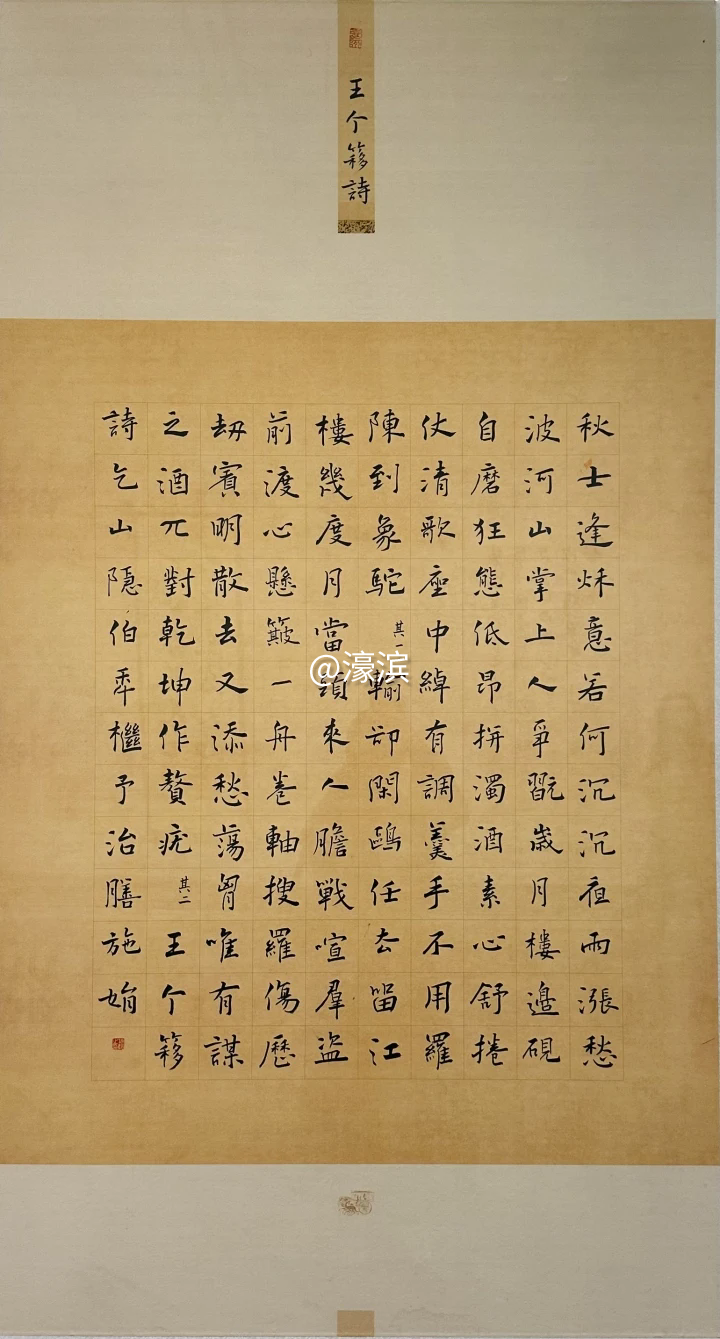 王个簃詩
秋士逢秌意若何沉沉夜雨漲愁
波河山掌上人爭翫歲月樓邉硯
自磨狂態低昂拼濁酒素心舒捲
仗清歌座中綽有調羹手不用羅
陳到象駝其一輸卻閑鷗任去留江
樓幾度月當頭來人膽戰喧羣盜
前渡心懸簸一舟卷軸搜羅傷歷
劫賓明散去又添愁蕩胷唯有謀
之酒兀對乾坤作贅疣其二王个簃
詩乞山隱伯檵予治膳施娟
@濠滨